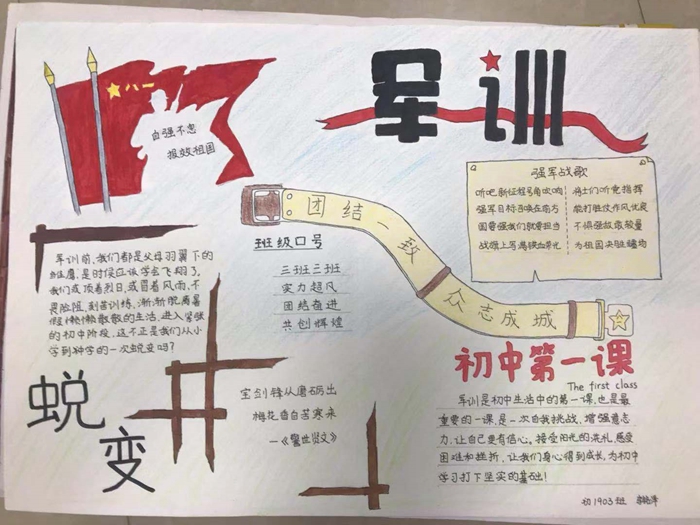 军训
八一
自强不息
报效祖国
强军战歌
听吧新征程号角吹响
强军目标召唤在前方
国要强我们就要担当
战旗上写满铁血荣光
将士们听党指挥
能打胜仗作风优良
不惧强敌敢较量
为祖国决胜疆场
团结一致
众志成城
班级口号
三班三班
实力超凡
团结奋进
共创辉煌
军训前,我们都是父母羽翼下的
雏鹰,是时候应该学会飞翔了。
我们或顶着烈日,或冒着风雨,不
畏险阻,刻苦训练,渐渐脱离暑
假懒懒散散的生活,进入紧张
的初中阶段,这不正是我们从小
学到中学的一次蜕变吗?
蜕变
宝剑锋从磨砺出
梅花香自苦寒来
—《警世贤文》
初中第一课
The first class
军训是初中生活中的第一课,也是最
重要的一课,是一次自我挑战,增强意志
力,让自己更有信心。接受阳光的洗礼,感受
困难和挫折,让我们身心得到成长,为初中
学习打下坚实的基础!
初1903班